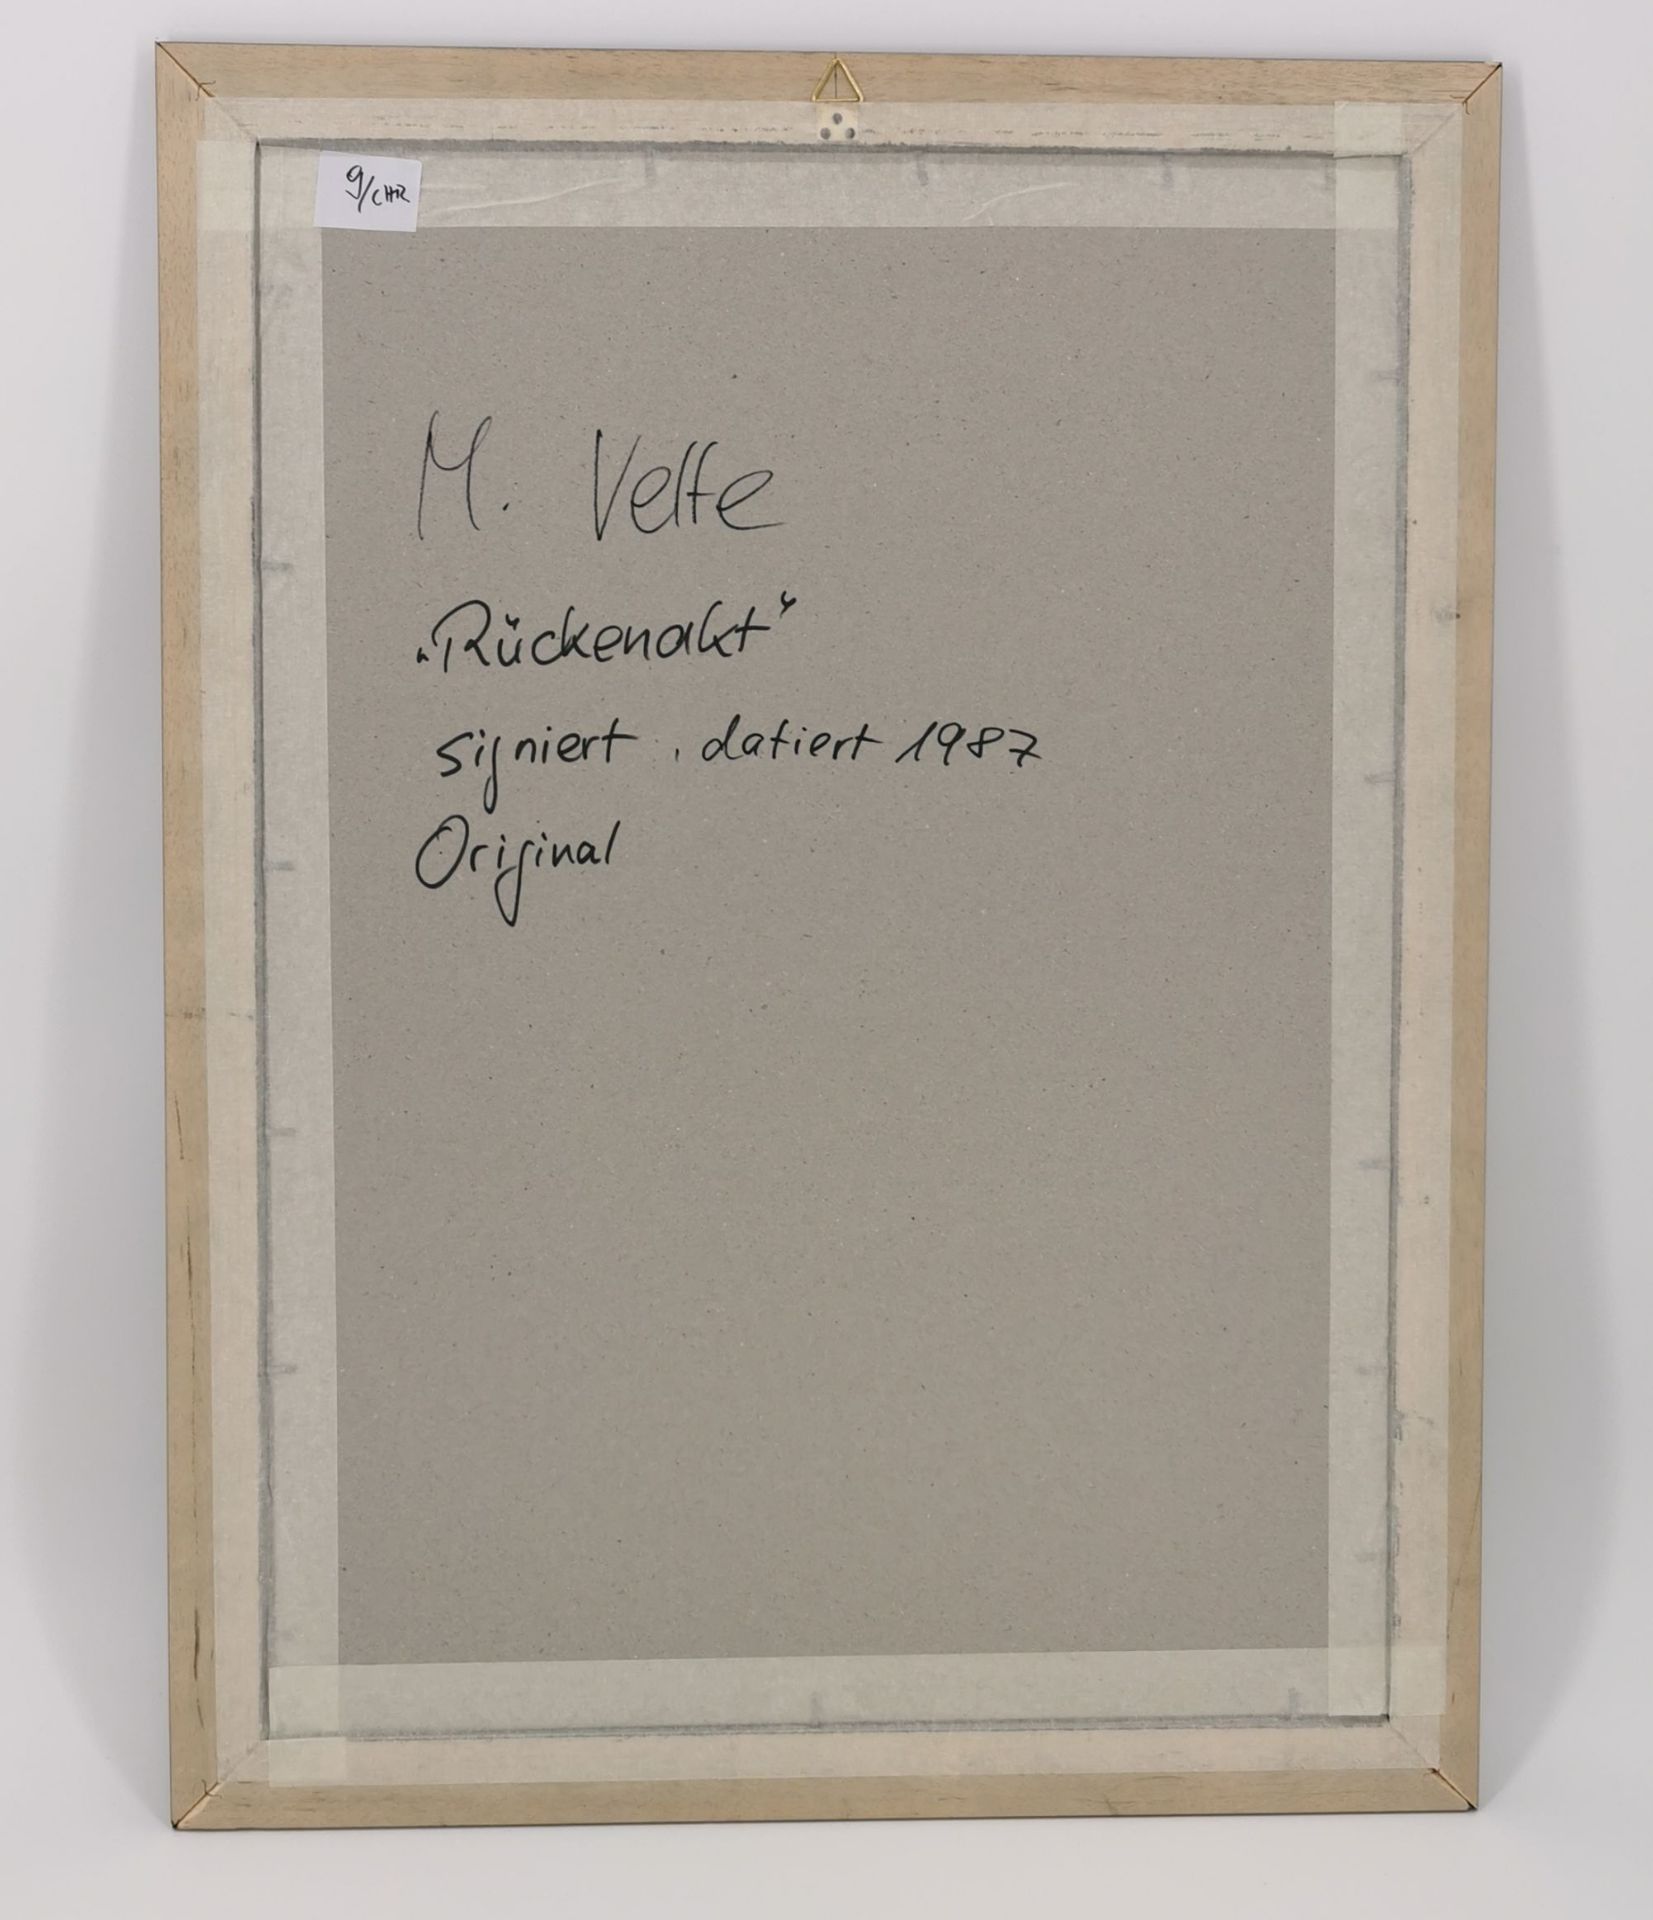 9/CHR
M. Velte
„Rückenakt“
signiert, datiert 1987
Original